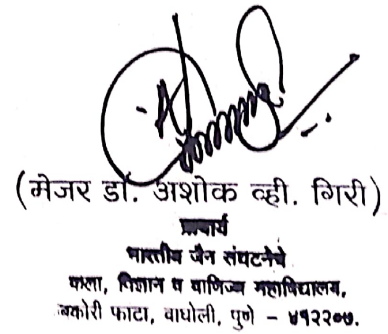 (मेजर डॉ. अशोक व्ही. गिरी)
प्राचार्य
भारतीय जैन संघटनेचे
कला, विज्ञान व वाणिज्य महाविद्यालय,
बकोरी फाटा, वाघोली, पुणे - ४१२२०७.